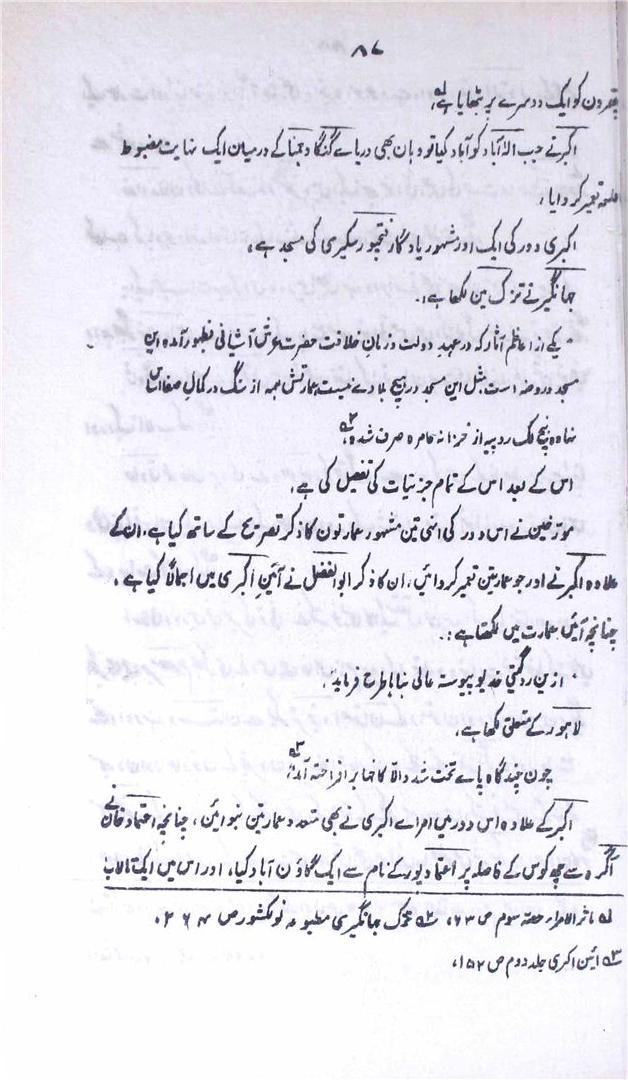 ۸۷
پتھرون کو ایک دوسرے پر بٹھایا ہے،
اکبر نے جب الہ آباد کو آباد کیا تو وہان بھی دریاے گنگا و جمنا کے درمیان ایک نہایت مضبوط
قلعہ تعمیر کروایا،
اکبری دور کی ایک اور مشہور یادگار فتحپور سیکری کی مسجد ہے،
جہانگیر نے تزک مین لکھا ہے:۔
"یکے از اعاظم آثار کہ در عہد دولت و زمان خلافت حضرت عرش آشیانی بظہور آمدہ این
مسجد و روضہ است، مثل این مسجد در ہیچ بلادے نیست عمارتش ہمہ از سنگ در کمال صفا است
پنج لک روپیہ از خزانہ عامرہ صرف شدہ"
اس کے بعد اس کے تمام جزئیات کی تفصیل کی ہے،
مورخین نے اس دور کی انھی تین مشہور عمارتون کا ذکر تصریح کے ساتھ کیا ہے، ان کے
علاوہ اکبر نے اور جو عمارتین تعمیر کروائین، ان کا ذکر ابوالفضل نے آئین اکبری میں اجمالاً کیا ہے،
چنانچہ آئین عمارت میں لکھتا ہے:۔
ازین رو گیتی خدیو پیوستہ عالی بناہا طرح فرماید"
لاہور کے متعلق لکھا ہے،
چون چندگاہ پاے تخت شد والا کاخہا برافراختہ آمد"
اکبر کے علاوہ اس دور میں امراے اکبری نے بھی متعدد عمارتین بنوائین، چنانچہ اعتماد خان نے
آگرہ سے چھ کوس کے فاصلہ پر اعتماد پور کے نام سے ایک گاؤن آباد کیا، اور اس میں ایک تالاب
۱؎ ماثر الامرا حصہ سوم ص ۶۳، ۲؎ تزک جہانگیری مطبوعہ نولکشور ص ۲۶۴،
۳؎ آئین اکبری جلد دوم ص ۱۵۲،